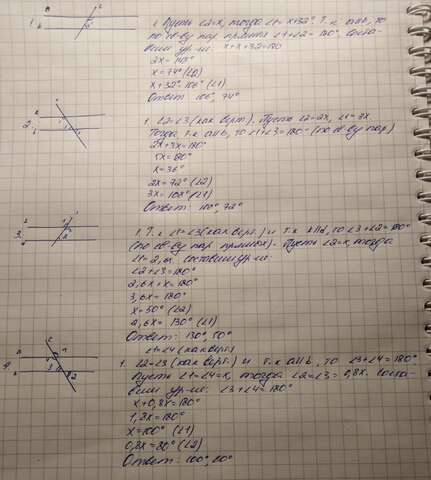 1. Пусть ∠2=x, тогда ∠1= x+32°. Т. к. a||b, то
по св-ву пар. прямых ∠1+∠2 = 180°. Соста-
вим ур-ие: x+x+32=180
2x = 148°
x = 74° (∠2)
x+32°=106° (∠1)
Ответ: 106°, 74°
2.
1. ∠2=∠3 (как верт.). Пусть ∠2=2x, ∠1=3x
Тогда т.к. a||b, то ∠1+∠3=180° (по св-ву пар.)
2x+3x=180°
5x=180°
x=36°
2x=72° (∠2)
3x=108° (∠1)
Ответ: 108°, 72°
3.
1. Т. к ∠1=∠3 (как верт.) и т.к a||b, то ∠3+∠2=180°
(по св-ву пар. прямых). Пусть ∠2=x, тогда
Составим ур-ие:
∠2+∠3=180°
2,6x+x=180°
3,6x=180°
x=50° (∠2)
2,6x= 130° (∠1)
Ответ: 130°, 50°
∠1=∠4 (как верт.)
4.
1. ∠2=∠3 (как верт.) и т.к a||b, то ∠3+∠4=180°
Пусть ∠1=∠4=x, тогда ∠2=∠3= 0,8x. Соста-
вим ур-ие: ∠3+∠4=180°
x+0,8x=180°
1,8x=180°
x=100° (∠1)
0,8x=80° (∠2)
Ответ: 100°, 80°